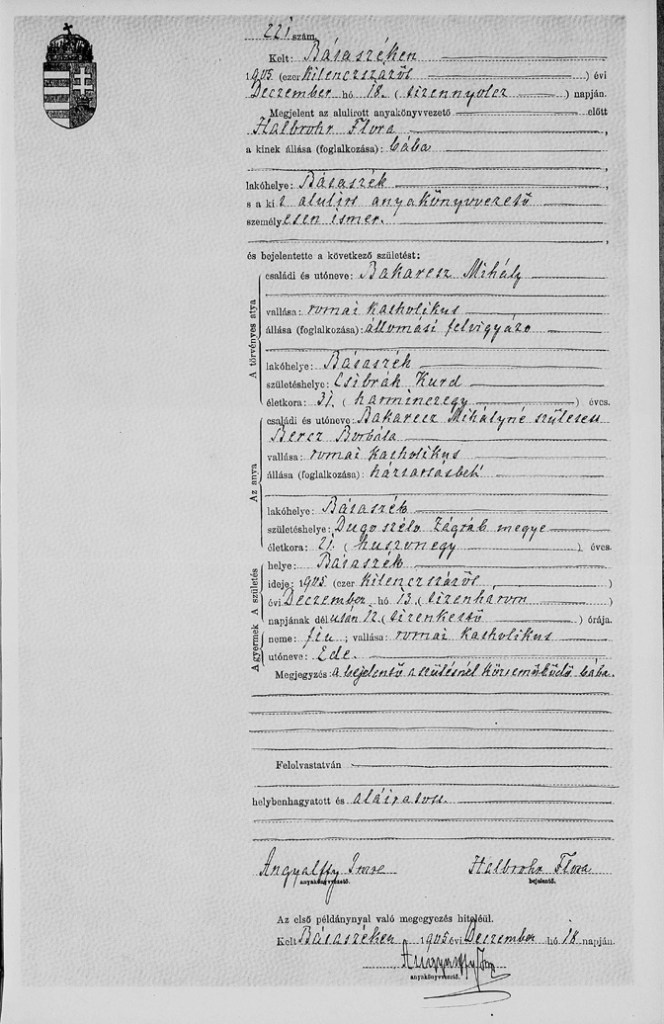 221 szám.
Kelt: Bátaszéken
1905 (ezer kilenczszázöt) évi
Deczember hó 18. (tizennyolcz) napján.
Megjelent az alulirott anyakönyvvezető előtt
Halbrohr Flora,
a kinek állása (foglalkozása): bába
lakóhelye: Bátaszék,
s a kit alulirt anyakönyvvezető
személyesen ismer.
és bejelentette a következő születést:
A törvényes atya
családi és utóneve: Bakarecz Mihály
vallása: romai katholikus
állása (foglalkozása): állomási felvigyázo
lakóhelye: Bátaszék
születéshelye: Csibrák Kurd
életkora: 31. (harminczegy) éves.
Az anya
családi és utóneve: Bakarecz Mihályné született
Bercz Borbála
vallása: romai katholikus
állása (foglalkozása): háztartásbeli
lakóhelye: Bátaszék
születéshelye: Dugoszélo Zágráb megye
életkora: 21. (huszonegy) éves.
A születés
helye: Bátaszék
ideje: 1905 (ezer kilenczszázöt)
évi Deczember hó 13. (tizenharom)
napjának délután 12. (tizenkettő) órája.
A gyermek
neme: fiu; vallása: romai katholikus
utóneve: Ede.
Megjegyzés: a bejelentő a szülésnél közreműködő bába.
Felolvastatván
helybenhagyatott és aláiratott.
Angyalffy Imre Halbrohr Flora
anyakönyvvezető. bejelentő.
Az első példánynyal való megegyezés hiteléül.
Kelt Bátaszéken 1905 évi Deczember hó 18. napján.
Angyalffy Imre
anyakönyvvezető.